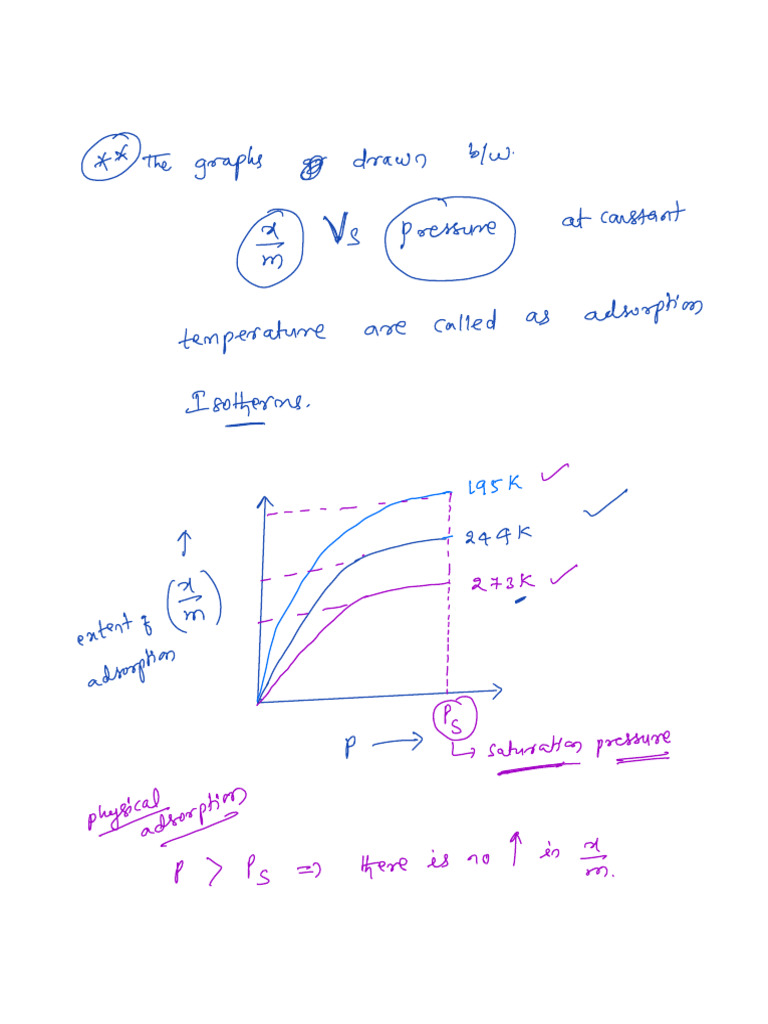 ** The graphs drawn b/w.
x/m Vs pressure at constant
temperature are called as adsorption
Isotherms.
195K ✓
244K ✓
273K ✓
↑
extent of (x/m)
adsorption
P →
Ps
↳ saturation pressure
physical
adsorption
P > Ps ⇒ there is no ↑ in x/m.